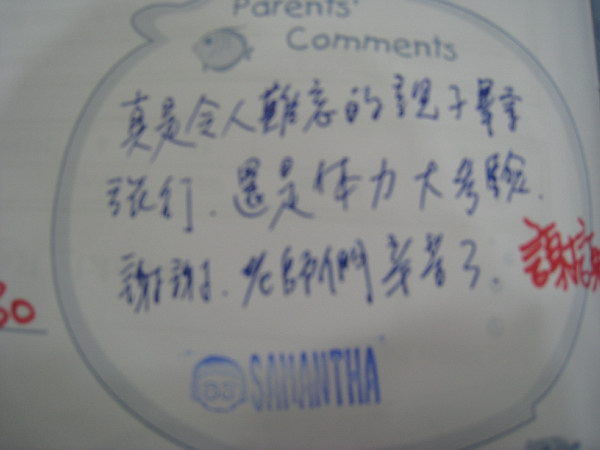 Parents'
Comments
真是令人難忘的親子畢業
旅行.還是体力大考驗.
謝謝.老師們辛苦了.
謝謝
30
SAMANTHA